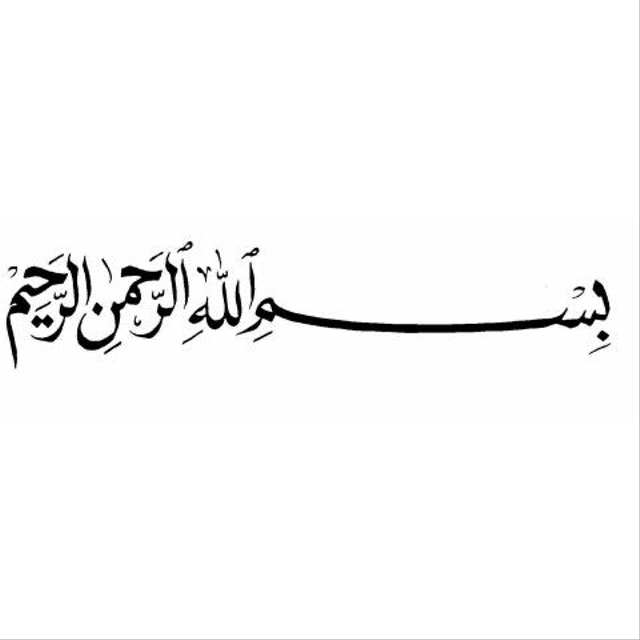 بِسْمِ ٱللَّٰهِ ٱلرَّحْمٰنِ الرَّحِيْمِ